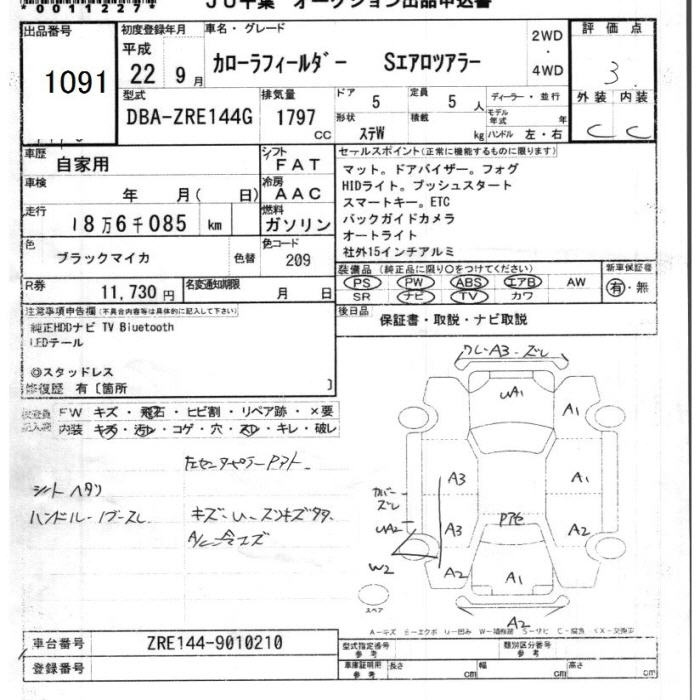 *00011227*
JU千葉 オークション出品申込書
出品番号
1091
初度登録年月
平成
22 9 月
車名・グレード
カローラフィールダー Sエアロツアラー
2WD
・
4WD
評価点
3
外装 内装
C C
型式
DBA-ZRE144G
排気量
1797
CC
ドア
5
定員
5 人
ディーラー・並行
モデル年式 年
形状
ステW
積載
kg
ハンドル 左・右
車歴
自家用
シフト
FAT
車検
年 月( 日)
冷房
AAC
走行
18万6千085 km
燃料
ガソリン
色
ブラックマイカ
色替
色コード
209
R券
11,730 円
名変通知期限
月 日
セールスポイント(正常に機能するものに限ります)
マット。ドアバイザー。フォグ
HIDライト。プッシュスタート
スマートキー。ETC
バックガイドカメラ
オートライト
社外15インチアルミ
装備品(純正品に限り○をつけてください)
PS PW ABS エアB AW
SR ナビ TV カワ
新車保証書
有・無
後日品
保証書・取説・ナビ取説
注意事項申告欄(不具合内容等は具体的に記入して下さい)
純正HDDナビ TV Bluetooth
LEDテール
◎スタッドレス
修復歴 有〔箇所 〕
検査員記入欄
FW キズ・飛石・ヒビ割・リペア跡・×要
内装 キズ・汚レ・コゲ・穴・スレ・キレ・破レ
シート ヘタリ
A3
UA1
A1
A3
A1
カバーズレ
UA2
A3
A2
W2
A2
A1
A2
スペア
A-キズ E-エクボ U-凹み W-補修跡 S-サビ C-腐食 XX-交換済
車台番号
ZRE144-9010210
登録番号
型式指定番号
参考
類別区分番号
参考
車庫証明用
参考
長さ cm
幅 cm
高さ cm